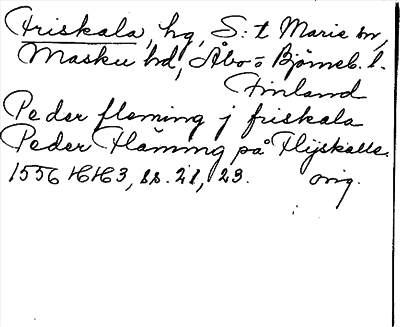 Friskala, hg, S:t Marie sn,
Masku hd, Åbo o Björneb. l.
Finland
Peder fleming j friskala
Peder Flāming på Flijskalle
1556 HH3, ss. 21, 23. orig.